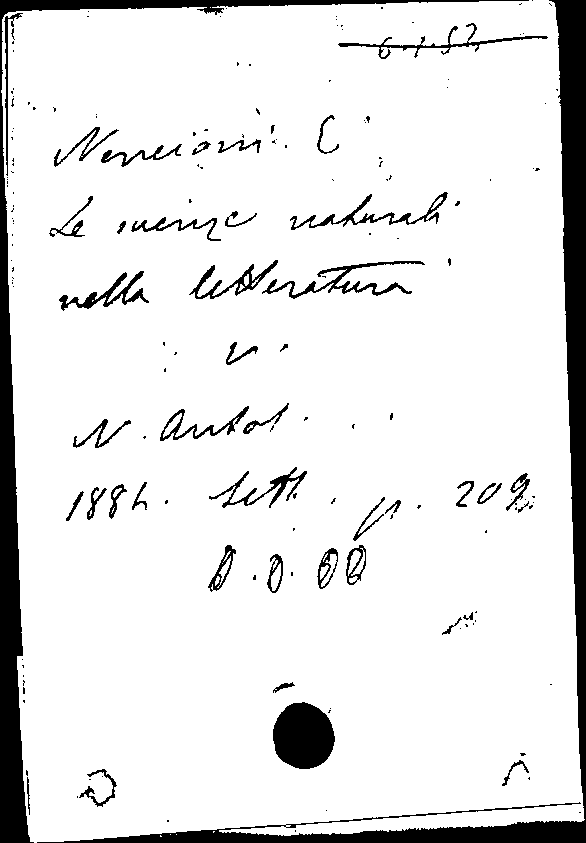 6.1.52
Nencioni E.
Le scienze naturali
nella letteratura
v.
N. Antol.
1884. Sett. p. 209